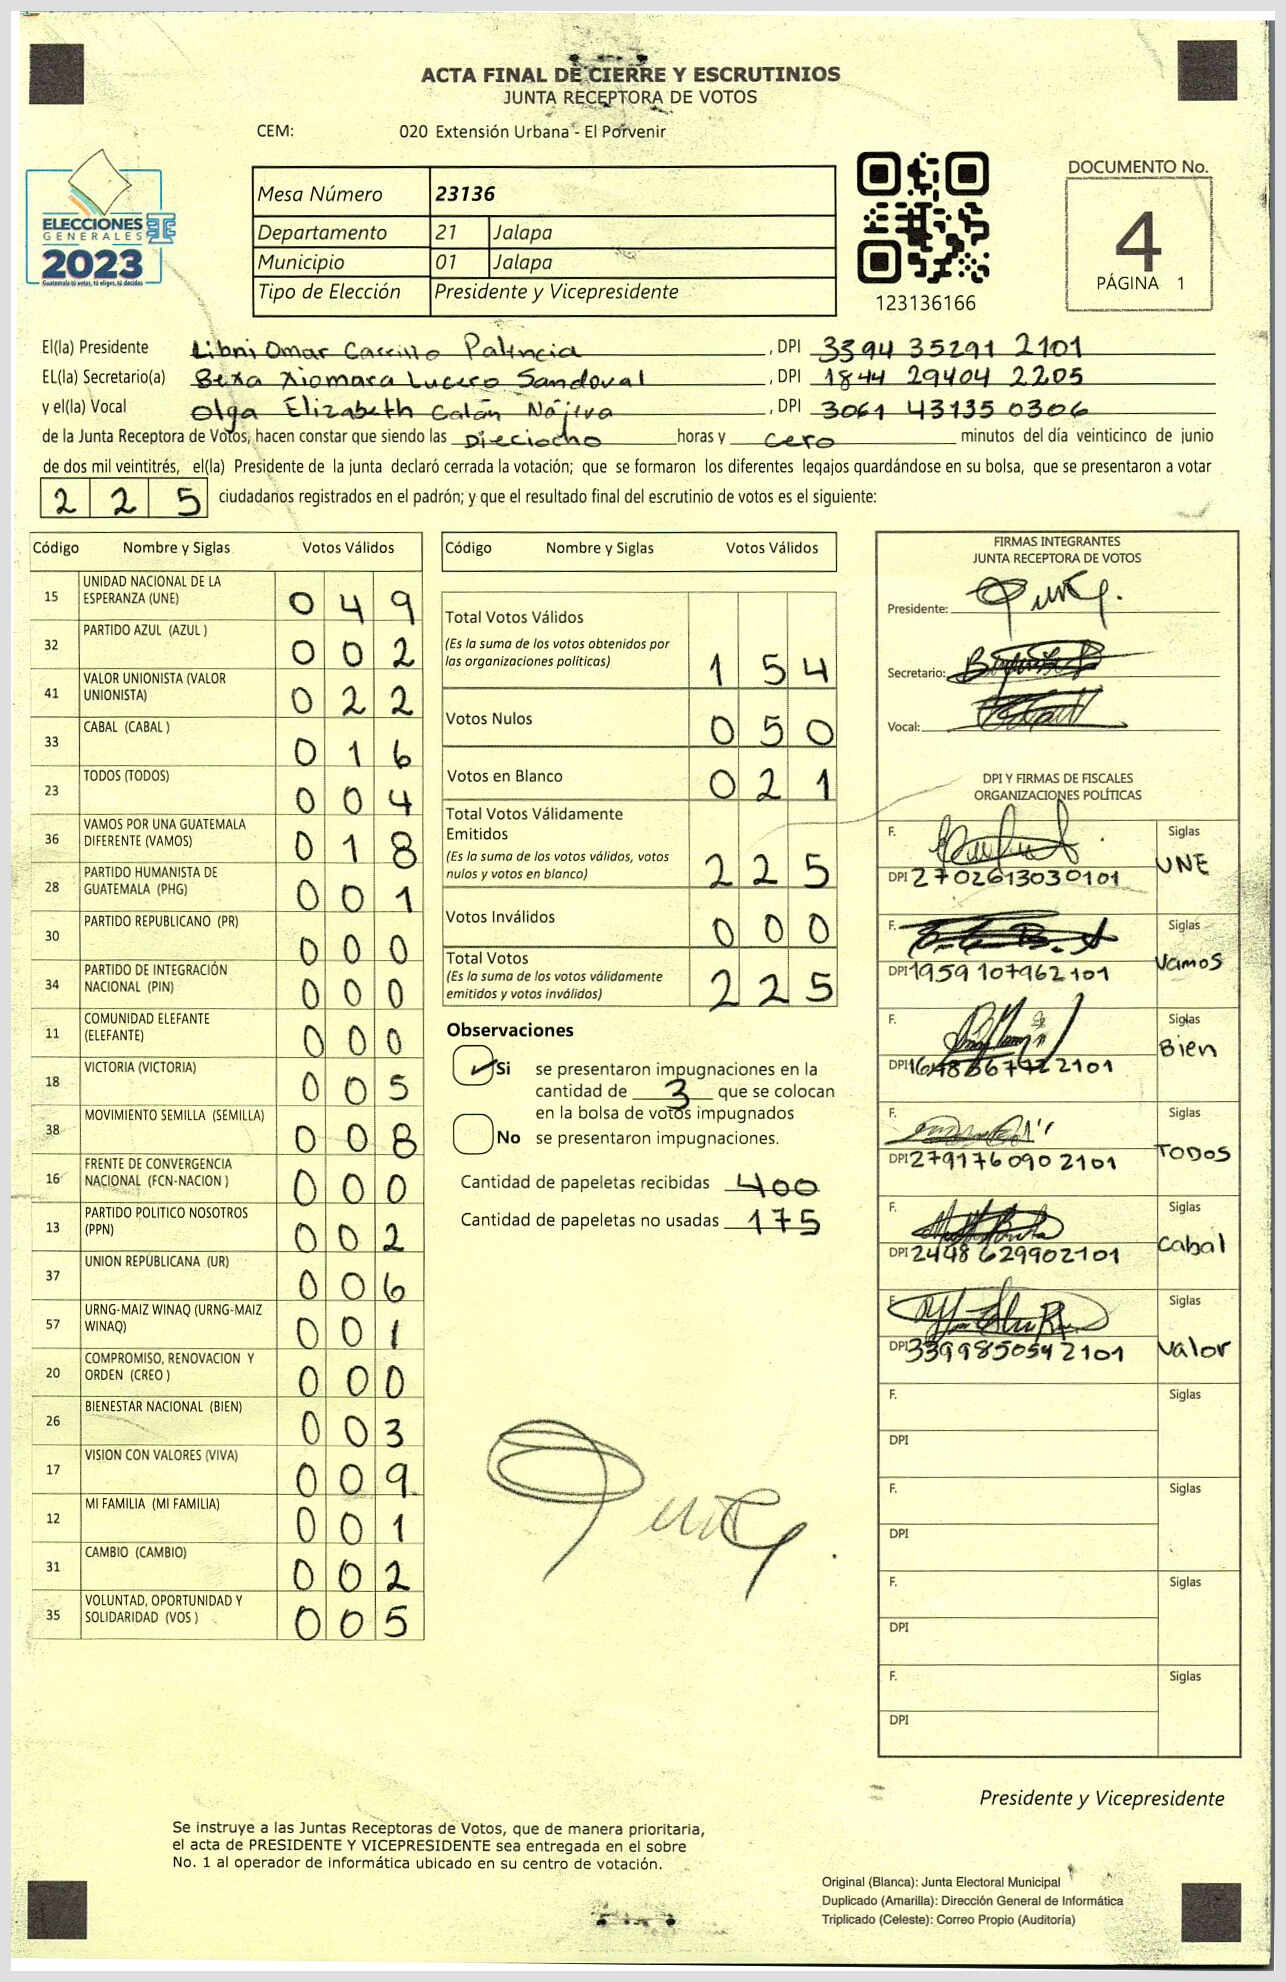 ACTA FINAL DE CIERRE Y ESCRUTINIOS
JUNTA RECEPTORA DE VOTOS
CEM: 020 Extensión Urbana - El Porvenir
ELECCIONES
GENERALES
2023
Guatemala tú votas, tú eliges, tú decides
Mesa Número 23136
Departamento 21 Jalapa
Municipio 01 Jalapa
Tipo de Elección Presidente y Vicepresidente
123136166
DOCUMENTO No.
4
PÁGINA 1
El(la) Presidente Libni Omar Carrillo Palencia, DPI 3394 35291 2101
EL(la) Secretario(a) Bexa Xiomara Lucero Sandoval, DPI 1844 29404 2205
y el(la) Vocal Olga Elizabeth Calán Nájera, DPI 3061 43135 0306
de la Junta Receptora de Votos, hacen constar que siendo las Dieciocho horas y cero minutos del día veinticinco de junio
de dos mil veintitrés, el(la) Presidente de la junta declaró cerrada la votación; que se formaron los diferentes legajos guardándose en su bolsa, que se presentaron a votar
2 2 5 ciudadanos registrados en el padrón; y que el resultado final del escrutinio de votos es el siguiente:
Código Nombre y Siglas Votos Válidos
15 UNIDAD NACIONAL DE LA ESPERANZA (UNE) 0 4 9
32 PARTIDO AZUL (AZUL ) 0 0 2
41 VALOR UNIONISTA (VALOR UNIONISTA) 0 2 2
33 CABAL (CABAL ) 0 1 6
23 TODOS (TODOS) 0 0 4
36 VAMOS POR UNA GUATEMALA DIFERENTE (VAMOS) 0 1 8
28 PARTIDO HUMANISTA DE GUATEMALA (PHG) 0 0 1
30 PARTIDO REPUBLICANO (PR) 0 0 0
34 PARTIDO DE INTEGRACIÓN NACIONAL (PIN) 0 0 0
11 COMUNIDAD ELEFANTE (ELEFANTE) 0 0 0
18 VICTORIA (VICTORIA) 0 0 5
38 MOVIMIENTO SEMILLA (SEMILLA) 0 0 8
16 FRENTE DE CONVERGENCIA NACIONAL (FCN-NACION ) 0 0 0
13 PARTIDO POLITICO NOSOTROS (PPN) 0 0 2
37 UNION REPUBLICANA (UR) 0 0 6
57 URNG-MAIZ WINAQ (URNG-MAIZ WINAQ) 0 0 1
20 COMPROMISO, RENOVACION Y ORDEN (CREO ) 0 0 0
26 BIENESTAR NACIONAL (BIEN) 0 0 3
17 VISION CON VALORES (VIVA) 0 0 9
12 MI FAMILIA (MI FAMILIA) 0 0 1
31 CAMBIO (CAMBIO) 0 0 2
35 VOLUNTAD, OPORTUNIDAD Y SOLIDARIDAD (VOS ) 0 0 5
Código Nombre y Siglas Votos Válidos
Total Votos Válidos
(Es la suma de los votos obtenidos por
las organizaciones políticas) 1 5 4
Votos Nulos 0 5 0
Votos en Blanco 0 2 1
Total Votos Válidamente
Emitidos
(Es la suma de los votos válidos, votos
nulos y votos en blanco) 2 2 5
Votos Inválidos 0 0 0
Total Votos
(Es la suma de los votos válidamente
emitidos y votos inválidos) 2 2 5
Observaciones
Si se presentaron impugnaciones en la
cantidad de 3 que se colocan
en la bolsa de votos impugnados
No se presentaron impugnaciones.
Cantidad de papeletas recibidas 400
Cantidad de papeletas no usadas 175
FIRMAS INTEGRANTES
JUNTA RECEPTORA DE VOTOS
Presidente:
Secretario:
Vocal:
DPI Y FIRMAS DE FISCALES
ORGANIZACIONES POLÍTICAS
F. Siglas UNE
DPI 2702613030101
F. Siglas Vamos
DPI 1959 107962101
F. Siglas Bien
DPI
F. Siglas TODOS
DPI 2791760902101
F. Siglas Cabal
DPI 2448 629902101
F. Siglas Valor
DPI 3399850542101
F. Siglas
DPI
F. Siglas
DPI
F. Siglas
DPI
F. Siglas
DPI
Presidente y Vicepresidente
Se instruye a las Juntas Receptoras de Votos, que de manera prioritaria,
el acta de PRESIDENTE Y VICEPRESIDENTE sea entregada en el sobre
No. 1 al operador de informática ubicado en su centro de votación.
Original (Blanca): Junta Electoral Municipal
Duplicado (Amarilla): Dirección General de Informática
Triplicado (Celeste): Correo Propio (Auditoría)